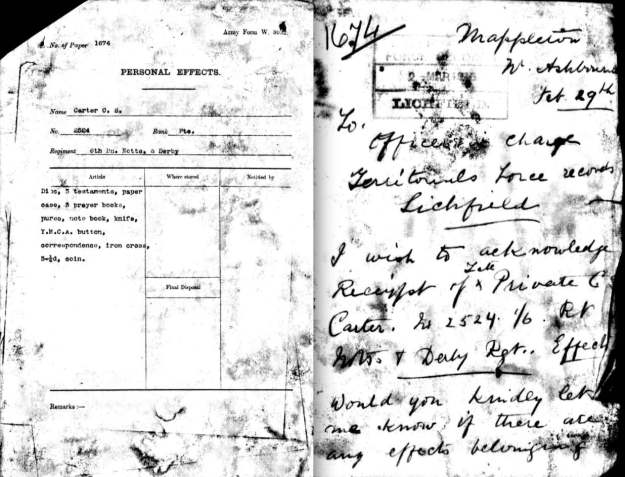 Army Form W.
No. of Paper 1674
PERSONAL EFFECTS.
Name Carter C. S.
No. 2524 Rank Pte.
Regiment 6th Bn. Notts, & Derby
Article Where stored Notified by
Disc, 3 testaments, paper
case, 2 prayer books,
purse, note book, knife,
Y.M.C.A. button,
correspondence, iron cross,
coin.
Final Disposal
Remarks :—
1674
Mappleton
Nr. Ashbourne
Feb. 29th
LICHFIELD
To.
Officer charge
Territorials Force records
Lichfield
I wish to acknowledge
Receipt of Late Private C
Carter. No 2524. 1/6. Rt
Notts & Derby Rgt.. Effects
Would you kindley let
me know if there are
any effects belonging